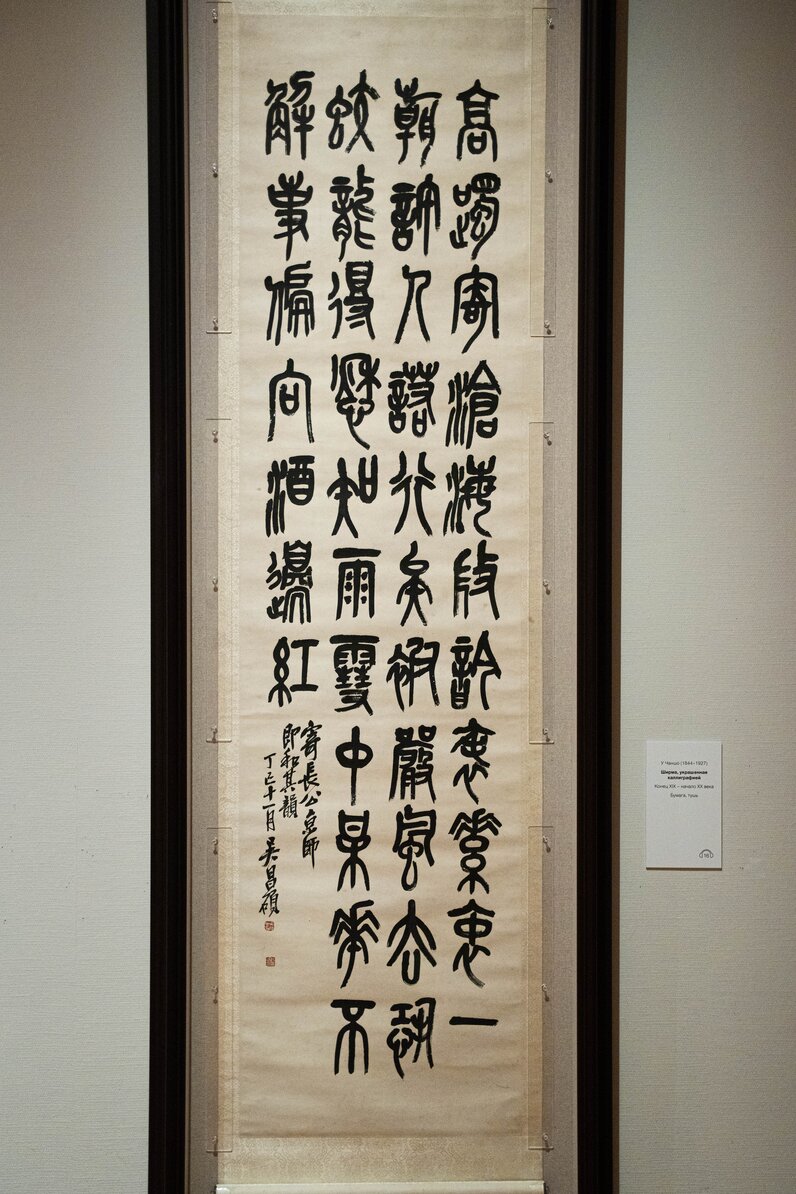 高躅寄滄海表素衷一
朝許人諾行矣被嚴風去恐
蛟龍得愁知雨雪中某華不
解事偏向酒邊紅
寄長公京師
即和其韻
丁巳十一月吳昌碩
У Чаншо (1844–1927)
Ширма, украшенная
каллиграфией
Конец XIX – начало XX века
Бумага, тушь
16